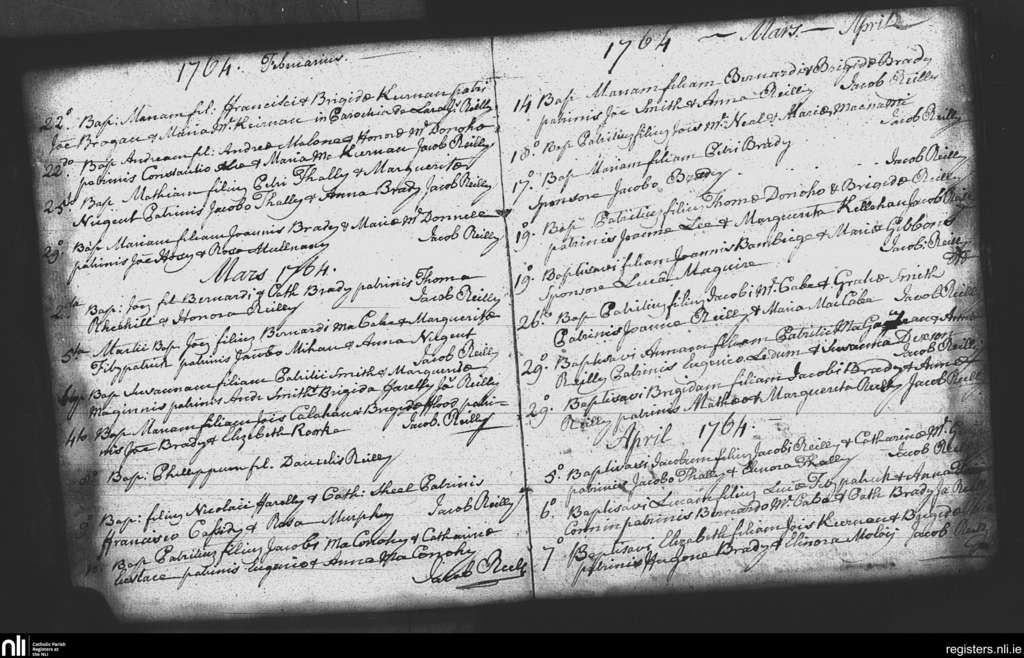 1764. Februarius.
22º Bap: Mariam fil: Francisci & Brigidæ Kiernan patri
Joe Brogan & Maria Mc Kiernan in Parochia de Jas Reilly
22do Bap Andream fil: Andreæ Malone & Honoræ Mc Donoho
patrinis Constantio Lee & Maria Mc Kiernan Jacob Reilly
Bap Mathiam filiu Petri Thally & Margueritæ
Niugent Patrinis Jacobo Thally & Anna Brady Jacob Reilly
29º Bap Mariam filiam Joannis Brady & Mariæ Mc Donnell
patrinis Joe Hoey & Rosa Mullenany Jacob Reilly
Mars 1764.
2da Bap: Joej fil Bernardi & Cath Brady patrinis Thoma
& Honora Reilly Jacob Reilly
5ta Martii Bap Joej filiu Bernardi Ma Cabe & Margueritæ
Fitzpatrick patrinis Jacobo Mihan & Anna Niugent
Jacob Reilly
Bap Susannam filiam Patritii Smith & Margueritæ
Maginnis patrinis And: Smith & Brigida Farelly Jas Reilly
4to Bap Mariam filiam Jois Calahan & Brigidæ Flood patri-
nis Joe Brady & Elizabeth Rorke Jacob Reilly
8º Bap: Philippum fil. Davidis Reilly
9º Bap: filiu Nicolai Farelly & Cath: Sheel Patrinis
Francisco Cassidy & Rosa Murphy Jacob Reilly
Bap Patritiu filiu Jacobi Ma Conohy & Catharinæ
Eustace patrinis Eugenio & Anna Ma Conohy
Jacob Reilly
1764 — Mars — April
14 Bap Mariam filiam Bernardi & Brigidæ Brady
patrinis Joe Smith & Anna Reilly Jacob Reilly
18º Bap Patritiu filiu Jois Mc Neal & Mariæ Macnamè
Jacob Reilly
17º Bap Mariam filiam Petri Brady
Sponsore Jacobo Brady Jacob Reilly
19º Bap Patritiu filiu Thomæ Donoho & Brigidæ Reilly
patrinis Joanne Lee & Marguerita Kellehan Jacob Reilly
19º Baptisavi filiam Joannis Bambrige & Mariæ Gibbons
Sponsore Luca Maguire Jacobi Reilly
26º Bap Patritiu filiu Jacobi Mc Cabe & Gratiæ Smith
Patrinis Joanne Reilly & Maria Mac Cabe Jacob Reilly
29º Baptisavi Annam filiam Patritii
Reilly Patrinis Eugenio Ledum & Susanna
Jacob Reilly
29º Baptisavi Brigidam filiam Jacobi Brady & Annæ
Reilly patrinis Matheo & Marguerita Reilly Jacob Reilly
April 1764.
5º Baptisavi Jacobum filiu Jacobi Reilly & Catharinæ Mc
patrinis Jacobo Thally & Elenora Thally Jacob Reilly
6º Baptisavi Lucam filiu Lucæ Fitzpatrick & Anna
patrinis Bernardo Mc Cabe & Cath Brady Ja Reilly
7º Baptisavi Elizabeth filiam Jois Kiernan & Brigidæ
patrinis Brady & Elinora Moloy Jacob Reilly
nli Catholic Parish
Registers at
the NLI
registers.nli.ie